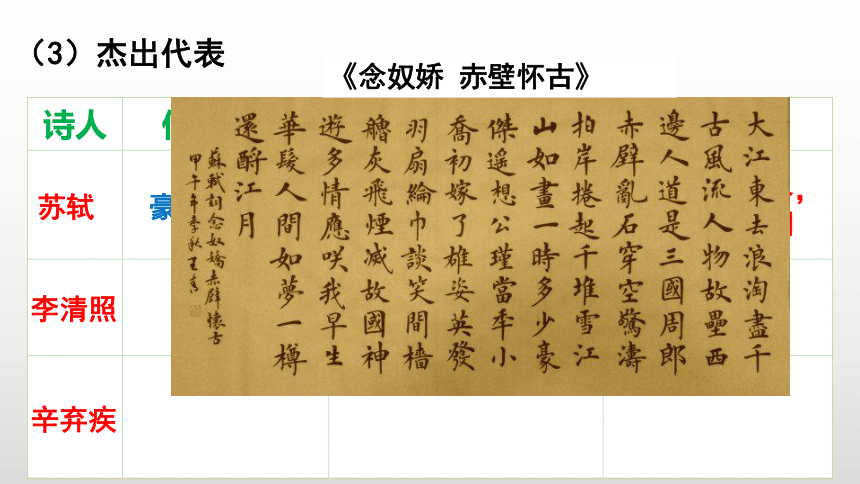 （3）杰出代表
《念奴娇 赤壁怀古》
诗人
苏轼
豪
李清照
辛弃疾
大江東去浪淘盡千
古風流人物故壘西
邊人道是三國周郎
赤壁亂石穿空驚濤
拍岸捲起千堆雪江
山如畫一時多少豪
傑遙想公瑾當秊小
喬初嫁了雄姿英發
羽扇綸巾談笑間檣
艪灰飛煙滅故國神
遊多情應咲我早生
華髮人間如夢一樽
還酹江月
蘇軾詞念奴嬌赤壁懷古
甲午年季秋王